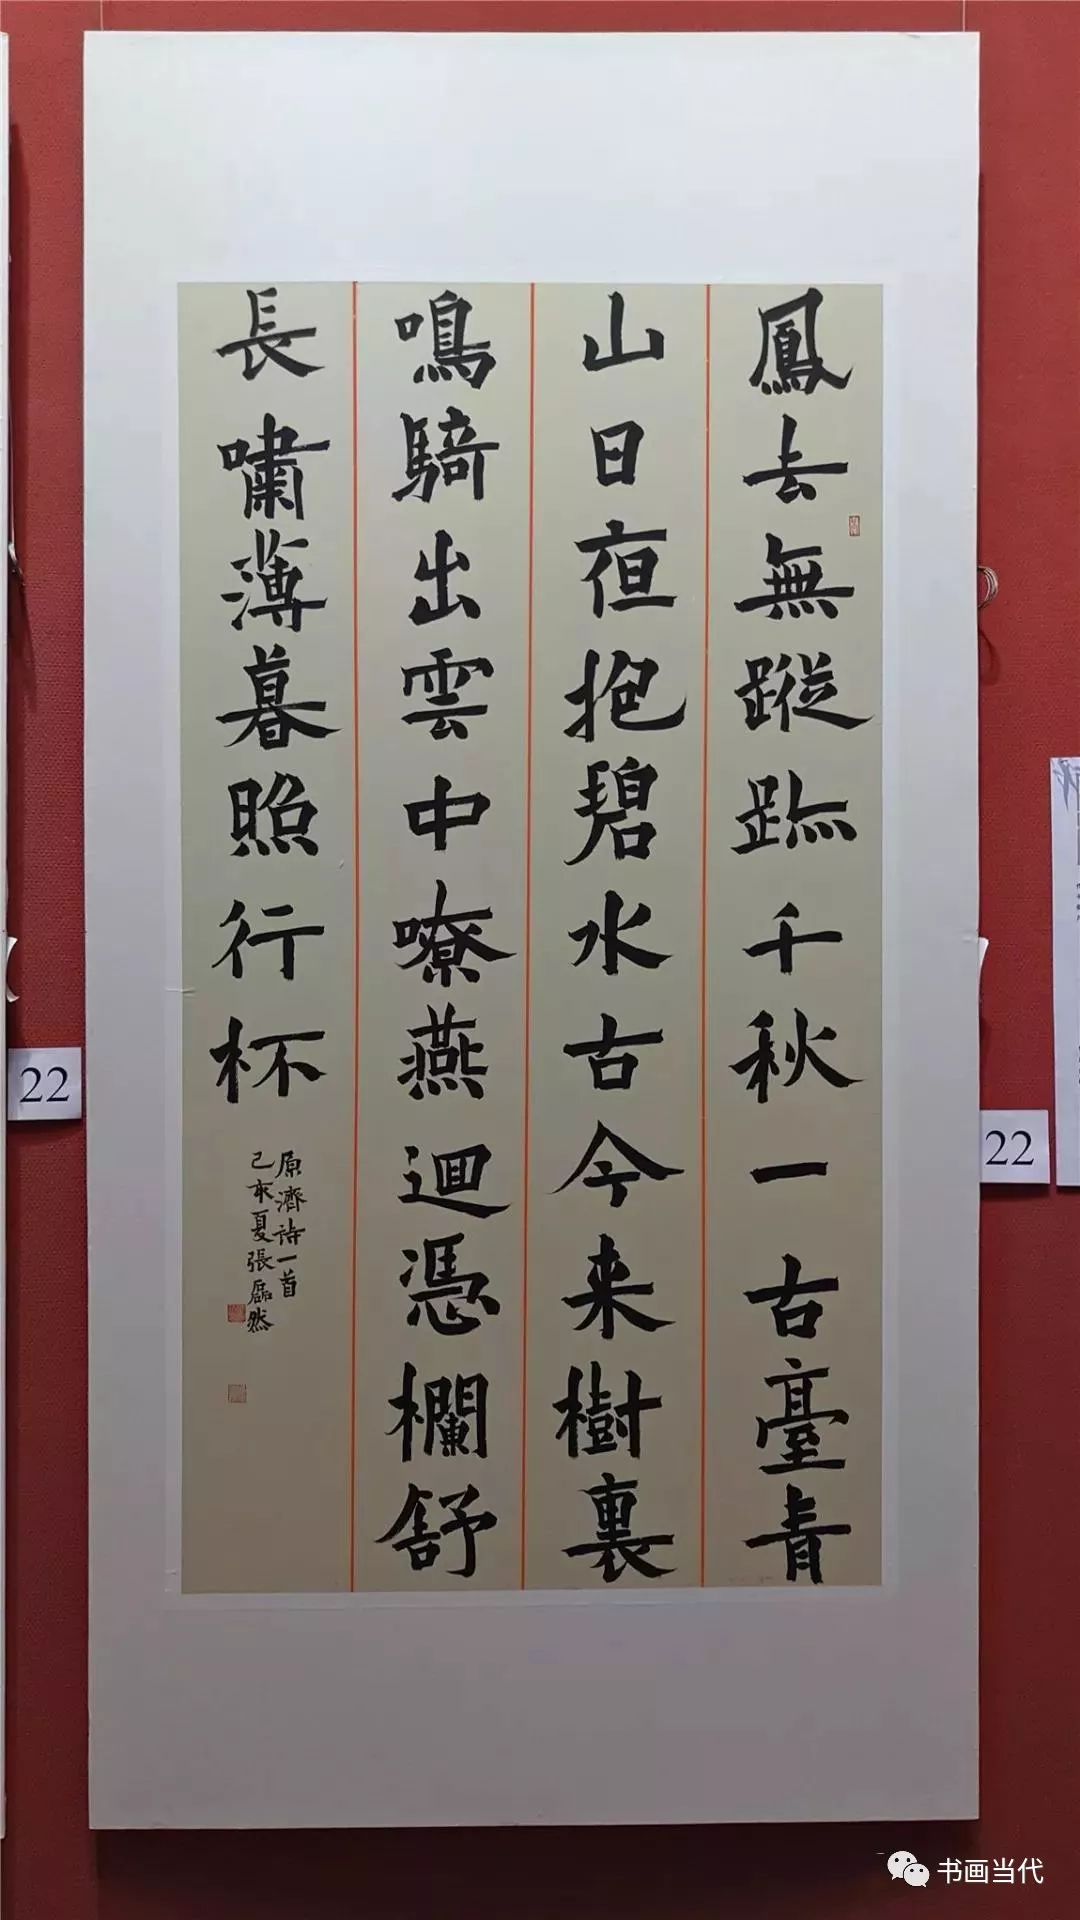 鳳去無蹤跡千秋一古臺青
山日夜抱碧水古今来樹裏
鳴騎出雲中嘹燕迴憑欄舒
長嘯薄暮照行杯
原濟詩一首
己亥夏張磊然
22
22
书画当代